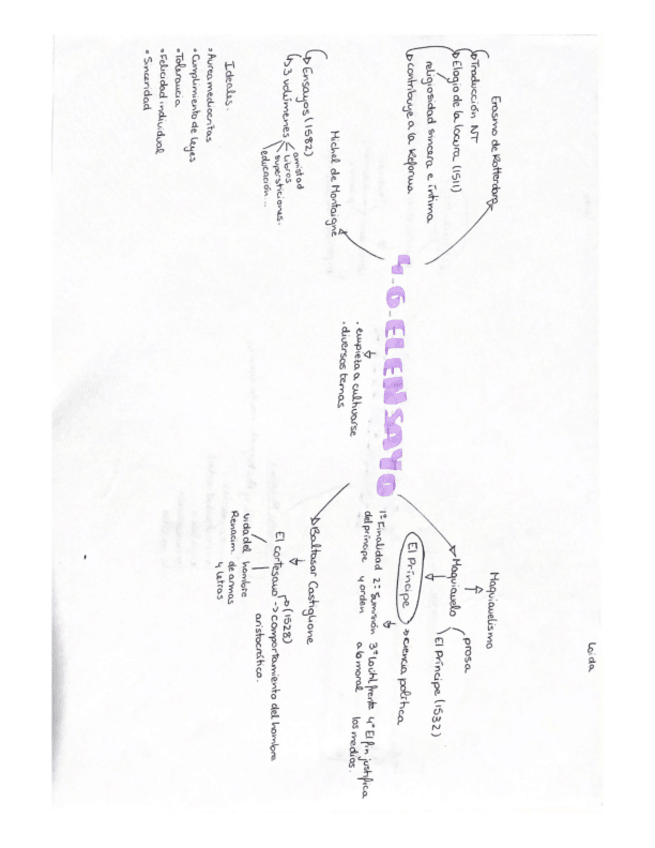 Loida
4.6-EL ENSAYO
. empieza a cultivarse
. diversos temas
Erasmo de Rotterdam
Traducción NT
Elogio de la locura (1511)
religiosidad sincera e íntima
contribuye a la Reforma
Michel de Montaigne
Ensayos (1582)
3 volúmenes
amistad
libros
supersticiones.
educación...
Ideales.
• Aurea mediocritas
• Cumplimiento de leyes
• Tolerancia
• Felicidad individual
• Sinceridad
Maquiavelismo
Maquiavelo
prosa
El Príncipe (1532)
El Príncipe → ciencia política
1º Finalidad del príncipe
2º Sumisión y orden
3º Lo útil frente a lo moral
4º El fin justifica los medios.
Baltasar Castiglione
El cortesano → comportamiento del hombre aristocrático.
(1528)
vida del hombre Renacim.
de armas y letras